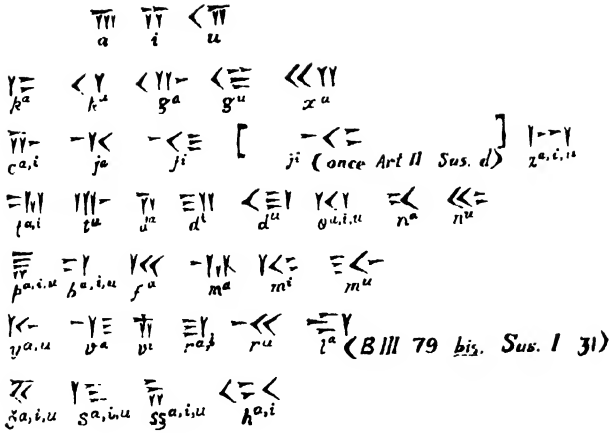 𐎠 𐎡 𐎢
a i u
𐎣 𐎤 𐎥 𐎦 𐎧
kᵃ kᵘ gᵃ gᵘ xᵘ
𐎨 𐎩 𐎪 [ ] 𐏀
cᵃ,ⁱ jᵃ jⁱ jⁱ (once Art II Sus. d) zᵃ,ⁱ,ᵘ
𐎫 𐎬 𐎭 𐎮 𐎯 𐎰 𐎴 𐎵
tᵃ,ⁱ tᵘ dᵃ dⁱ dᵘ θᵃ,ⁱ,ᵘ nᵃ nᵘ
𐎱 𐎲 𐎳 𐎶 𐎷 𐎸
pᵃ,ⁱ,ᵘ bᵃ,ⁱ,ᵘ fᵃ mᵃ mⁱ mᵘ
𐎹 𐎺 𐎻 𐎼 𐎽 𐎾
yᵃ,ᵘ vᵃ vⁱ rᵃ,ⁱ rᵘ lᵃ (B III 79 bis. Sus. I 31)
𐏁 𐎿 𐏂 𐏃
sᵃ,ⁱ,ᵘ hᵃ,ⁱ